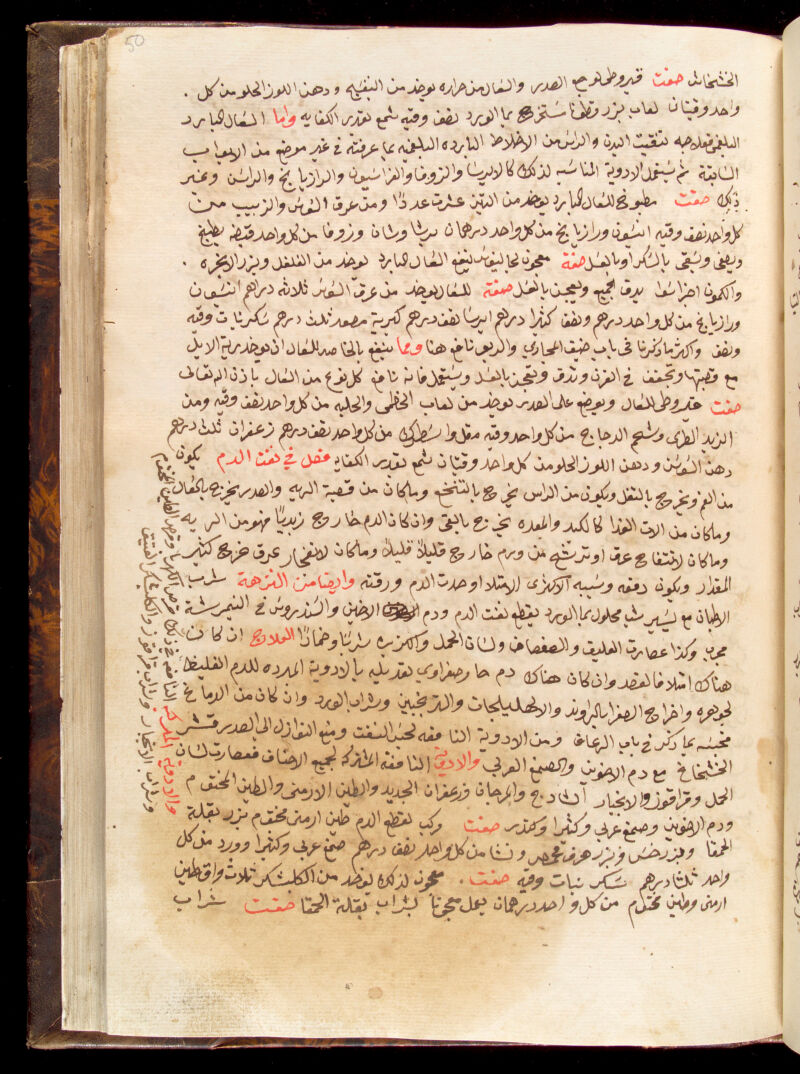 50
الخشخاش صفت قيروطي لوجع الصدر والسعال من حراره يوخد من البنفسج ودهن اللوز الحلو من كل
واحد وقيتان لعاب بزر قطونا مستخرج بما الورد نصف وقيه شمع بقدر الكفايه واما السعال البارد
البلغمي فعلاجه تنقيت البدن والراس من الاخلاط البارده البلغميه بما عرفته في غير موضع من الابواب
السابقة ثم يستعمل الادوية المناسبه لذلك كالايرسا والزوفا والفراسيون والرازيانج والراسن وغير
ذلك صفت مطبوخ للسعال البارد يوخد من التين عشرت عددا ومن عرق السوس والزبيب من
كل واحد نصف وقيه انيسون ورازيانج من كل واحد درهمان برشاوشان وزوفا من كل واحد قبضه يطبخ
ويصفى ويسقى بالسكر او بالعسل صفة معجون لحاليوس ينفع السعال البارد يوخد من الفلفل وبزر الانجره
والكمون اجزا سوا يدق الجميع ويعجن بالعسل صفة للسعال يوخد من عرق السوس ثلاثه دراهم انيسون
ورازيانج من كل واحد درهم ونصف كثيرا درهم ايرسا نصف درهم كبريت مصعد ثلث درهم سكر نبات وقيه
ونصف واكثر ما ذكرنا في باب ضيق المجاري والربو نافع هنا ومما ينفع بالخاصه للسعال ان يوخد رية الايل
مع قصبتها وتجفف في الفرن وتدق وتعجن بالعسل ويستعمل فانه نافع لكل نوع من السعال باذن الله تعالى
صفت قيروطي للسعال ويوضع على الصدر يوخد من لعاب الخطمي والحلبه من كل واحد نصف وقيه ومن
الزبد الطري وشحم الدجاج من كل واحد وقيه مقل واسطرك من كل واحد نصف درهم زعفران ثلث درهم
دهن السوسن ودهن اللوز الحلو من كل واحد وقيتان شمع بقدر الكفايه فصل في نفث الدم يكون
من الفم ويخرج بالتفل ويكون من الراس يخرج بالتنخع وما كان من قصبة الريه والصدر يخرج بالسعال
وما كان من الات الغدا كالكبد والمعده يخرج بالقي وان كان الدم خارج زبديا فهو من الريه
وما كان لانفتاح عرق او ترشح من ورم خارج قليلا قليلا وما كان لانفجار عرق خرج كثير
المقدار ويكون دفعه وسببه الاكثري الامتلا او حدت الدم ورقته وايضا من النزهة شراب
الاطيان مع يسير شب محلول بما الورد يقطع نفث الدم ودم الاخوين والسندروس في النيمرشة
مجرب وكذا عصارت العليق والصفصاف ولسان الحمل والكزبره شربا وضمادا العلاج ان كان
هناك امتلا فالفصد وان كان هناك دم حار صفراوي تعديله بالادوية المبرده للدم الغليظ
لجوهره واخراج الصفرا بالراوند والاهليلجات والترنجبين وشراب الورد وان كان من الدماغ
فحبسه بما ذكر في باب الرعاف ومن الادوية النافعه لحبس النفث ومنع النوازل الى الصدر قشر
الخشخاش مع دم الاخوين والصمغ العربي والادوية النافعة المشتركه لجميع الاصناف فعصارت لسان
الحمل وقراقوز والانجبار الشادنج والمرجان وزعفران الحديد والطين الارمني والطين المختوم
ودم الاخوين وصمغ عربي وكثيرا وكهدبر صفت وكب لقطع الدم طين ارمني مختوم بزر بقلة
الحمقا وبزر خس وبزر هرف محمص ونشا من كل واحد نصف درهم صمغ عربي وكثيرا وورد من كل
واحد ثلثا درهم سكر نبات وقيه صفت معجون لذلك يوخد من الكلشكر ثلاث واق طين
ارمني وطين مختوم من كل واحد درهمان يعمل معجونا بشراب بقلة الحمقا صفت شراب
والادوية المركبه النافعه في ذلك قرص الكهربا وقرص الطين المختوم
وشراب الانجبار وشراب قراقوز والكلشكر العتيق